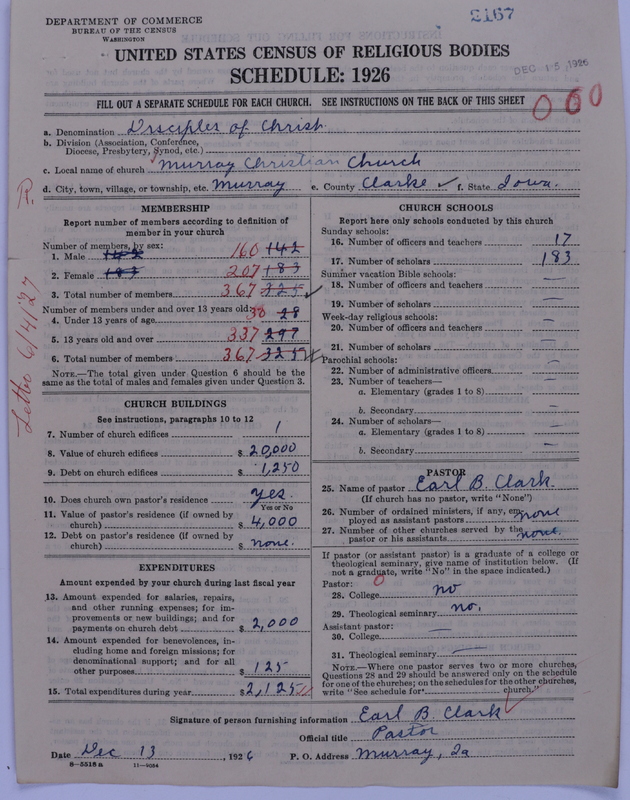 DEPARTMENT OF COMMERCE
BUREAU OF THE CENSUS
WASHINGTON
2167
UNITED STATES CENSUS OF RELIGIOUS BODIES
SCHEDULE: 1926
DEC 15 1926
FILL OUT A SEPARATE SCHEDULE FOR EACH CHURCH. SEE INSTRUCTIONS ON THE BACK OF THIS SHEET
060
a. Denomination Disciples of Christ
b. Division (Association, Conference, Diocese, Presbytery, Synod, etc.)
c. Local name of church Murray Christian Church
d. City, town, village, or township, etc. Murray e. County Clarke ✓ f. State Iowa.
R.
Letter 6/4/27
MEMBERSHIP
Report number of members according to definition of member in your church
Number of members, by sex:
1. Male 160 142
2. Female 183 207 183
3. Total number of members 367 325 ✓
Number of members under and over 13 years old:
4. Under 13 years of age 30 28
5. 13 years old and over 337 297
6. Total number of members 367 325
NOTE.—The total given under Question 6 should be the same as the total of males and females given under Question 3.
CHURCH BUILDINGS
See instructions, paragraphs 10 to 12
7. Number of church edifices 1
8. Value of church edifices $ 20,000
9. Debt on church edifices $ 1,250
10. Does church own pastor's residence yes.
Yes or No
11. Value of pastor's residence (if owned by church) $ 4,000
12. Debt on pastor's residence (if owned by church) $ none.
EXPENDITURES
Amount expended by your church during last fiscal year
13. Amount expended for salaries, repairs, and other running expenses; for improvements or new buildings; and for payments on church debt $ 2,000
14. Amount expended for benevolences, including home and foreign missions; for denominational support; and for all other purposes $ 125
15. Total expenditures during year $ 2,125
CHURCH SCHOOLS
Report here only schools conducted by this church
Sunday schools:
16. Number of officers and teachers 17
17. Number of scholars 183
Summer vacation Bible schools:
18. Number of officers and teachers —
19. Number of scholars —
Week-day religious schools:
20. Number of officers and teachers —
21. Number of scholars —
Parochial schools:
22. Number of administrative officers —
23. Number of teachers—
a. Elementary (grades 1 to 8) —
b. Secondary —
24. Number of scholars—
a. Elementary (grades 1 to 8) —
b. Secondary —
PASTOR
25. Name of pastor Earl B. Clark.
(If church has no pastor, write "None")
26. Number of ordained ministers, if any, employed as assistant pastors none
27. Number of other churches served by the pastor or his assistants none.
If pastor (or assistant pastor) is a graduate of a college or theological seminary, give name of institution below. (If not a graduate, write "No" in the space indicated.)
Pastor: 0
28. College no
29. Theological seminary no.
Assistant pastor:
30. College —
31. Theological seminary —
NOTE.—Where one pastor serves two or more churches, Questions 28 and 29 should be answered only on the schedule for one of the churches; on the schedules for the other churches, write "See schedule for church."
Signature of person furnishing information Earl B. Clark
Official title Pastor
Date Dec 13, 1926 P. O. Address Murray, Ia
8—5518a 11—9054